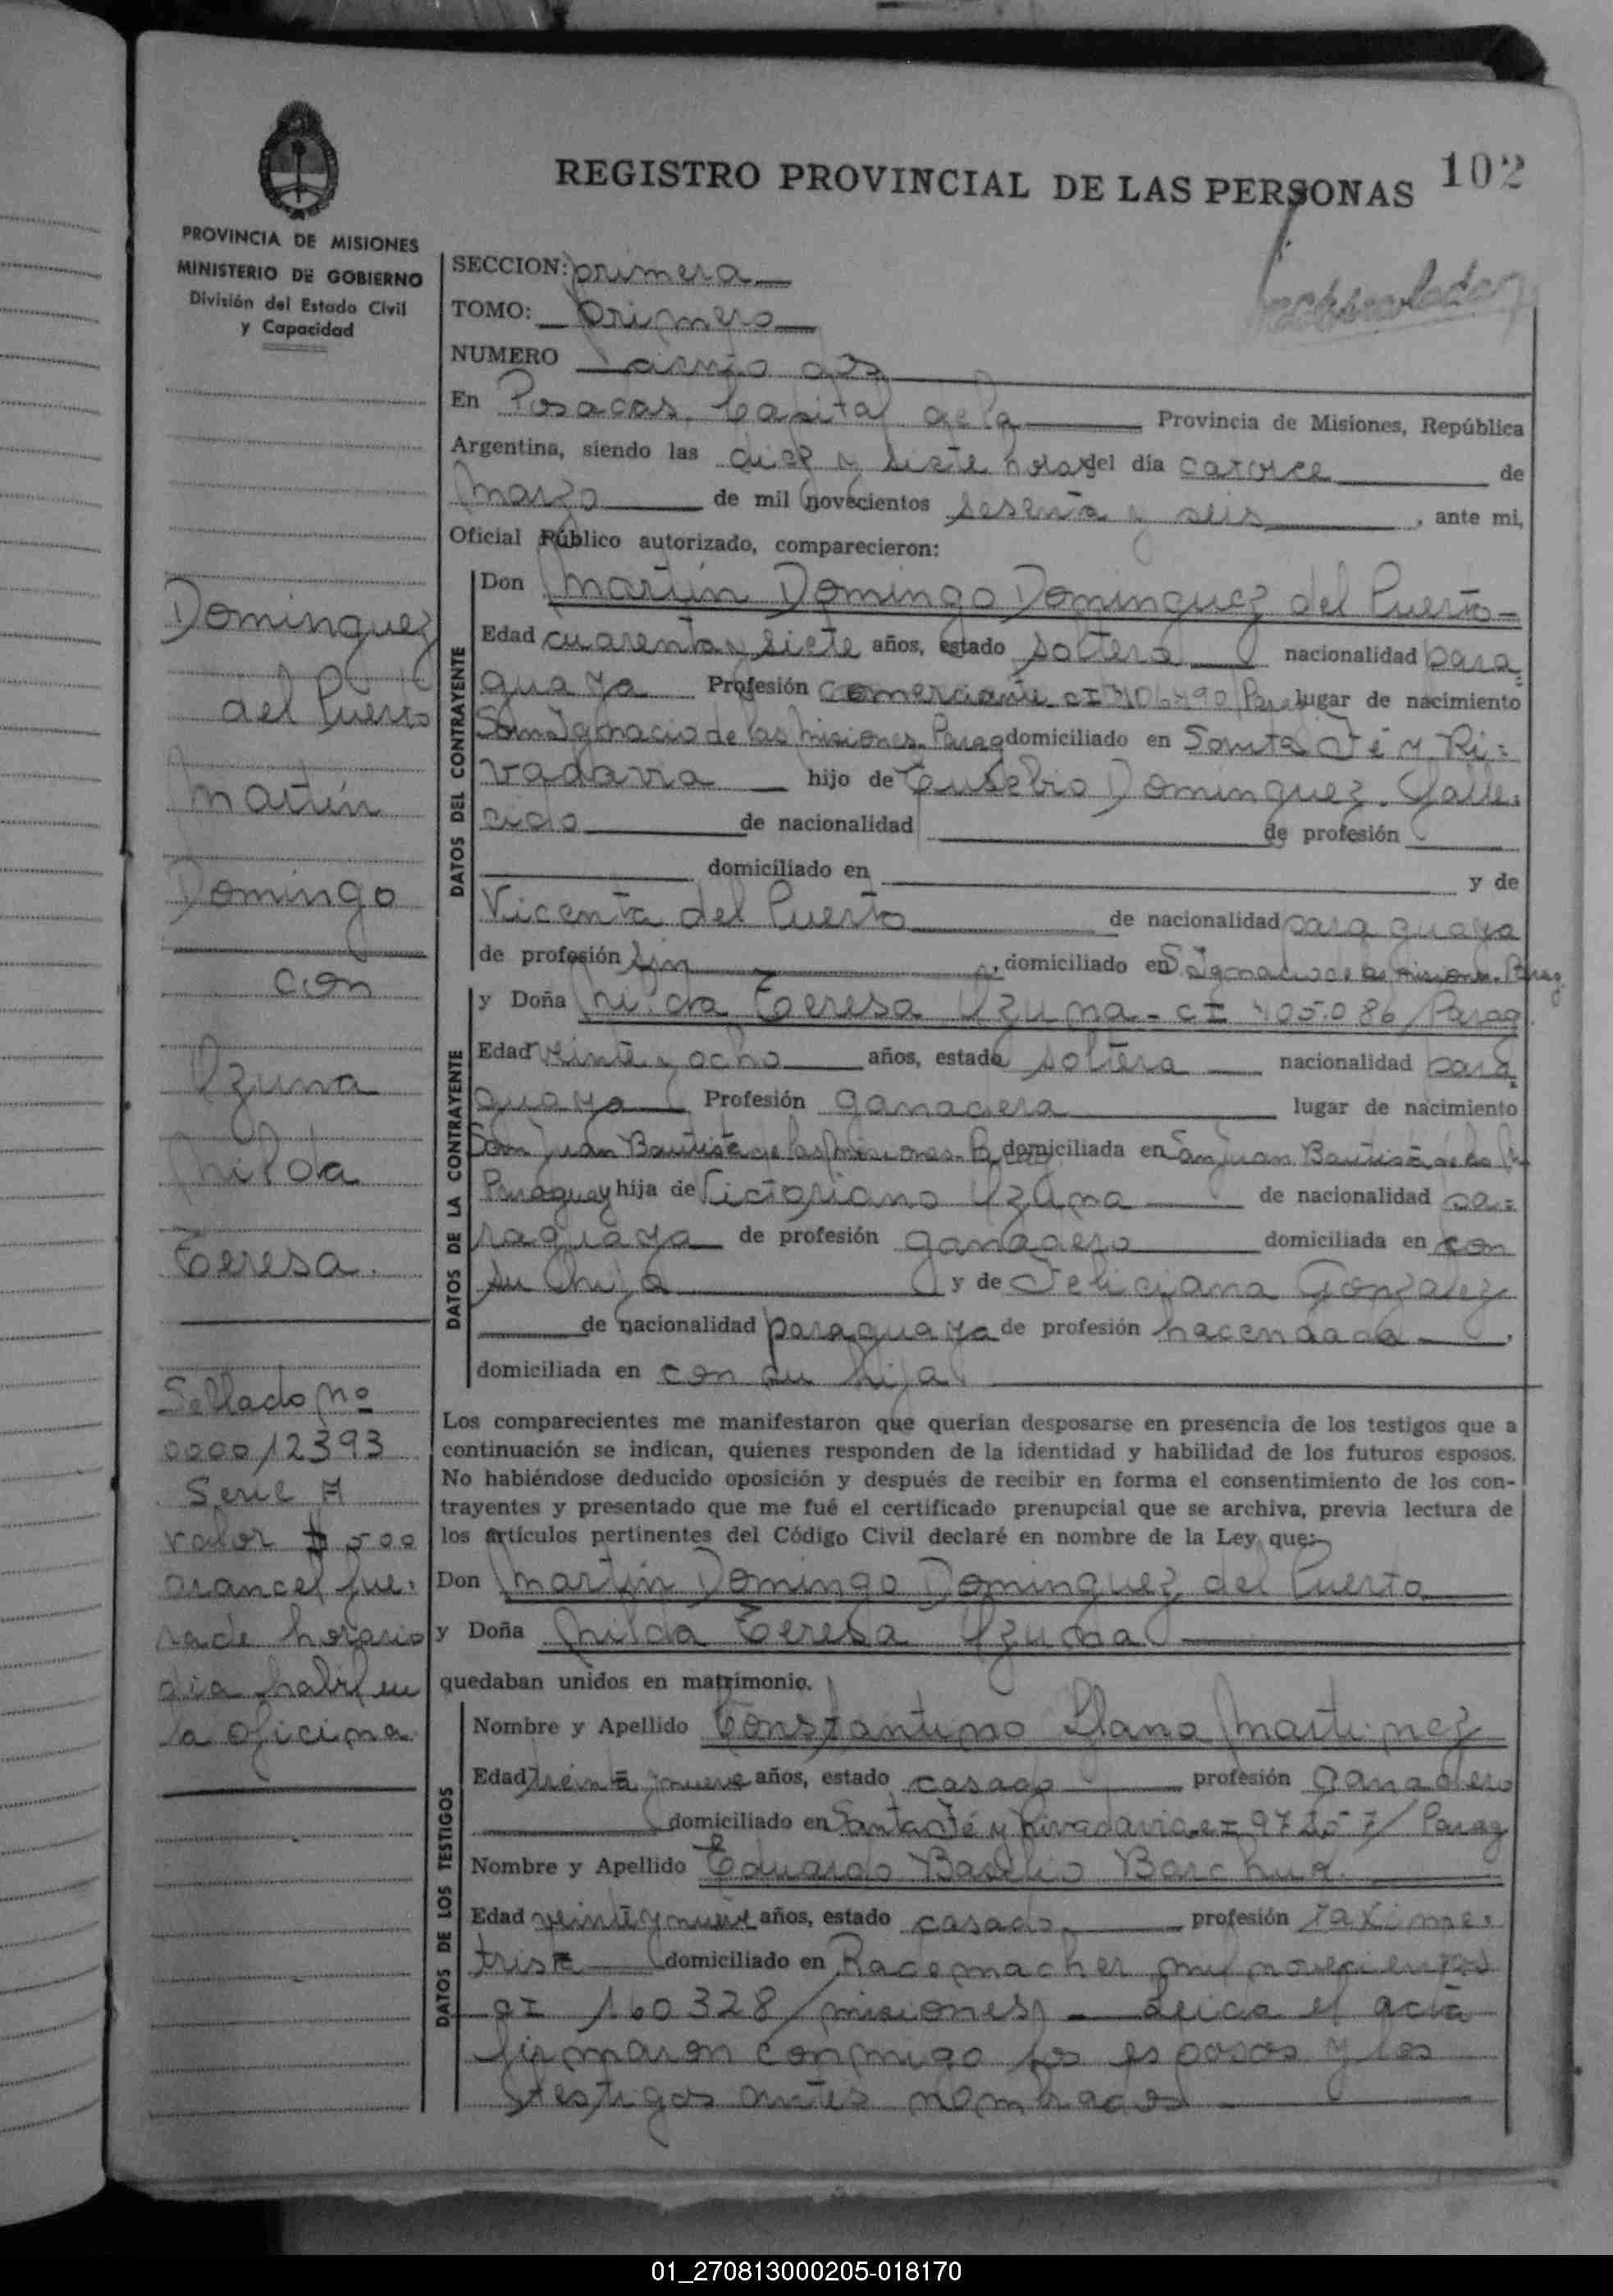 102
REGISTRO PROVINCIAL DE LAS PERSONAS
PROVINCIA DE MISIONES
MINISTERIO DE GOBIERNO
División del Estado Civil
y Capacidad
SECCION: primera
TOMO: primero
NUMERO ciento dos
En Posadas, Capital de la Provincia de Misiones, República
Argentina, siendo las diez y siete horas del día catorce de
marzo de mil novecientos sesenta y seis, ante mi,
Oficial Público autorizado, comparecieron:
Dominguez
del Puerto
Martín
Domingo
con
Yzuna
Nilda
Teresa.
Sellado Nº
0000,12393
Serie A
valor $ 500
arancel fue-
ra de horario
dia habil en
la oficina
DATOS DEL CONTRAYENTE
Don Martín Domingo Dominguez del Puerto-
Edad cuarenta y siete años, estado soltero nacionalidad para-
guaya Profesión comerciante CI 406490/Parag lugar de nacimiento
San Ignacio de las Misiones-Parag domiciliado en Santa Fé y Ri-
vadavia hijo de Eusebio Dominguez. Falle-
cido de nacionalidad de profesión
domiciliado en y de
Vicenta del Puerto de nacionalidad paraguaya
de profesión sin, domiciliado en S. Ignacio de las Misiones-Parag
DATOS DE LA CONTRAYENTE
y Doña Nilda Teresa Yzuna - CI 405.086/Parag.
Edad veinte y ocho años, estado soltera nacionalidad para-
guaya Profesión ganadera lugar de nacimiento
San Juan Bautista de las Misiones-Parag domiciliada en San Juan Bautista de las
Paraguay hija de Victoriano Yzuna de nacionalidad pa-
raguaya de profesión ganadero domiciliada en con
su hija y de Feliciana Gonzalez
de nacionalidad paraguaya de profesión hacendada.
domiciliada en con su hija
Los comparecientes me manifestaron que querían desposarse en presencia de los testigos que a
continuación se indican, quienes responden de la identidad y habilidad de los futuros esposos.
No habiéndose deducido oposición y después de recibir en forma el consentimiento de los con-
trayentes y presentado que me fué el certificado prenupcial que se archiva, previa lectura de
los artículos pertinentes del Código Civil declaré en nombre de la Ley, que:
Don Martín Domingo Dominguez del Puerto
y Doña Nilda Teresa Yzuna
quedaban unidos en matrimonio.
DATOS DE LOS TESTIGOS
Nombre y Apellido Constantino Llano Martinez
Edad treinta y nueve años, estado casado profesión ganadero
domiciliado en Santa Fé y Rivadavia CI 97257/Parag
Nombre y Apellido Eduardo Basilio Barchuk.
Edad veinte y nueve años, estado casado profesión taxime-
trista domiciliado en Rademacher mil novecientos
CI 160328/misiones - Leida el acta
firmaron conmigo los esposos y los
testigos antes nombrados
01_270813000205-018170